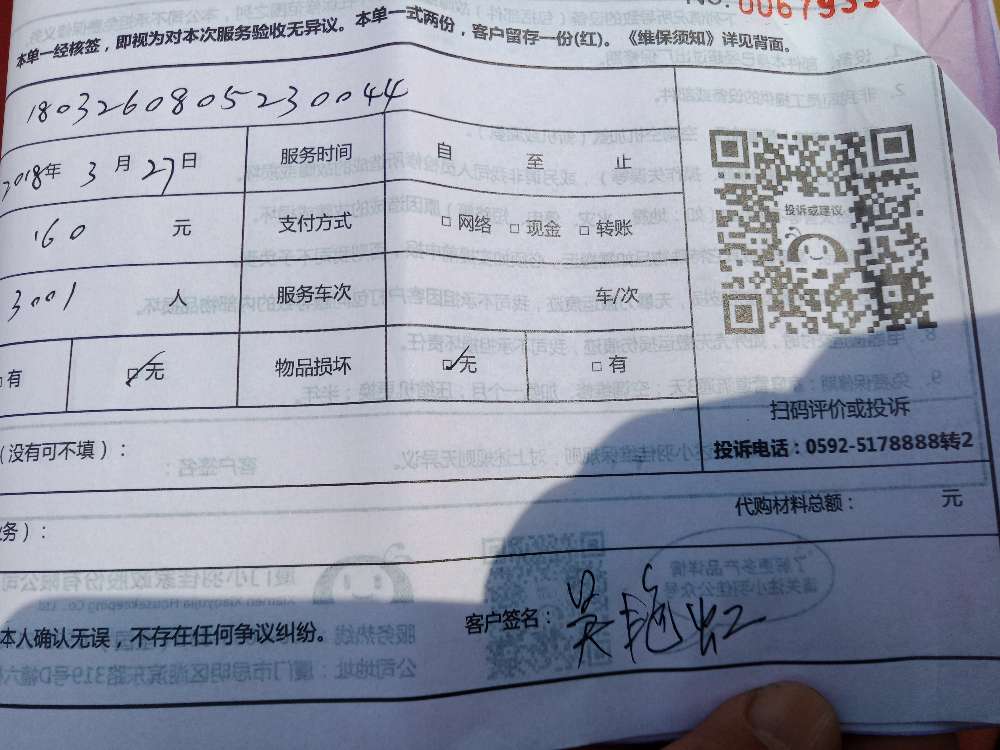 No. 0067935
本单一经核签，即视为对本次服务验收无异议。本单一式两份，客户留存一份(红)。《维保须知》详见背面。
1803260805230044
2018年 3 月 27 日 服务时间 自 至 止
160 元 支付方式 □ 网络 □ 现金 □ 转账
3001 人 服务车次 车/次
□ 有 □ 无 物品损坏 □ 无 □ 有
投诉或建议
扫码评价或投诉
投诉电话：0592-5178888转2
（没有可不填）：
代购材料总额： 元
业务）：
本人确认无误，不存在任何争议纠纷。
客户签名：吴艳虹